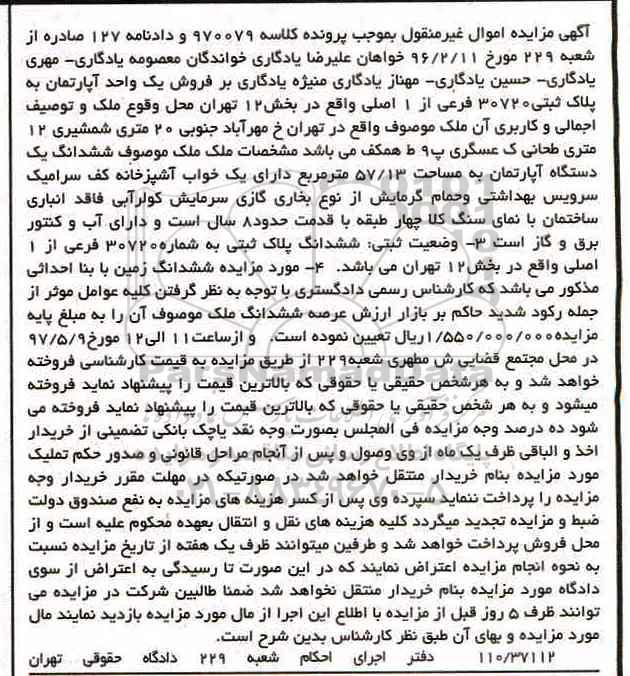 آگهی مزایده اموال غیرمنقول بموجب پرونده کلاسه ۹۷۰۰۷۹ و دادنامه ۱۲۷ صادره از
شعبه ۲۲۹ مورخ ۹۶/۲/۱۱ خواهان علیرضا یادگاری خواندگان معصومه یادگاری- مهری
یادگاری- حسین یادگاری- مهناز یادگاری منیژه یادگاری بر فروش یک واحد آپارتمان به
پلاک ثبتی۳۰۷۲۰ فرعی از ۱ اصلی واقع در بخش۱۲ تهران محل وقوع ملک و توصیف
اجمالی و کاربری آن ملک موصوف واقع در تهران خ مهرآباد جنوبی ۲۰ متری شمشیری ۱۲
متری طحانی ک عسگری پ۹ ط همکف می باشد مشخصات ملک ملک موصوف ششدانگ یک
دستگاه آپارتمان به مساحت ۵۷/۱۳ مترمربع دارای یک خواب آشپزخانه کف سرامیک
سرویس بهداشتی وحمام گرمایش از نوع بخاری گازی سرمایش کولرآبی فاقد انباری
ساختمان با نمای سنگ کلا چهار طبقه با قدمت حدود۸ سال است و دارای آب و کنتور
برق و گاز است ۳- وضعیت ثبتی: ششدانگ پلاک ثبتی به شماره۳۰۷۲۰ فرعی از ۱
اصلی واقع در بخش۱۲ تهران می باشد. ۴- مورد مزایده ششدانگ زمین با بنا احداثی
مذکور می باشد که کارشناس رسمی دادگستری با توجه به نظر گرفتن کلیه عوامل موثر از
جمله رکود شدید حاکم بر بازار ارزش عرصه ششدانگ ملک موصوف آن را به مبلغ پایه
مزایده۱/۵۵۰/۰۰۰/۰۰۰ریال تعیین نموده است. و ازساعت۱۱ الی۱۲ مورخ۹۷/۵/۹
در محل مجتمع قضایی ش مطهری شعبه۲۲۹ از طریق مزایده به قیمت کارشناسی فروخته
خواهد شد و به هرشخص حقیقی یا حقوقی که بالاترین قیمت را پیشنهاد نماید فروخته
میشود و به هر شخص حقیقی یا حقوقی که بالاترین قیمت را پیشنهاد نماید فروخته می
شود ده درصد وجه مزایده فی المجلس بصورت وجه نقد یاچک بانکی تضمینی از خریدار
اخذ و الباقی ظرف یک ماه از وی وصول و پس از آنجام مراحل قانونی و صدور حکم تملیک
مورد مزایده بنام خریدار منتقل خواهد شد در صورتیکه در مهلت مقرر خریدار وجه
مزایده را پرداخت ننماید سپرده وی پس از کسر هزینه های مزایده به نفع صندوق دولت
ضبط و مزایده تجدید میگردد کلیه هزینه های نقل و انتقال بعهده محکوم علیه است و از
محل فروش پرداخت خواهد شد و طرفین میتوانند ظرف یک هفته از تاریخ مزایده نسبت
به نحوه انجام مزایده اعتراض نمایند که در این صورت تا رسیدگی به اعتراض از سوی
دادگاه مورد مزایده بنام خریدار منتقل نخواهد شد ضمنا طالبین شرکت در مزایده می
توانند ظرف ۵ روز قبل از مزایده با اطلاع این اجرا از مال مورد مزایده بازدید نمایند مال
مورد مزایده و بهای آن طبق نظر کارشناس بدین شرح است.
۱۱۰/۳۷۱۱۲ دفتر اجرای احکام شعبه ۲۲۹ دادگاه حقوقی تهران